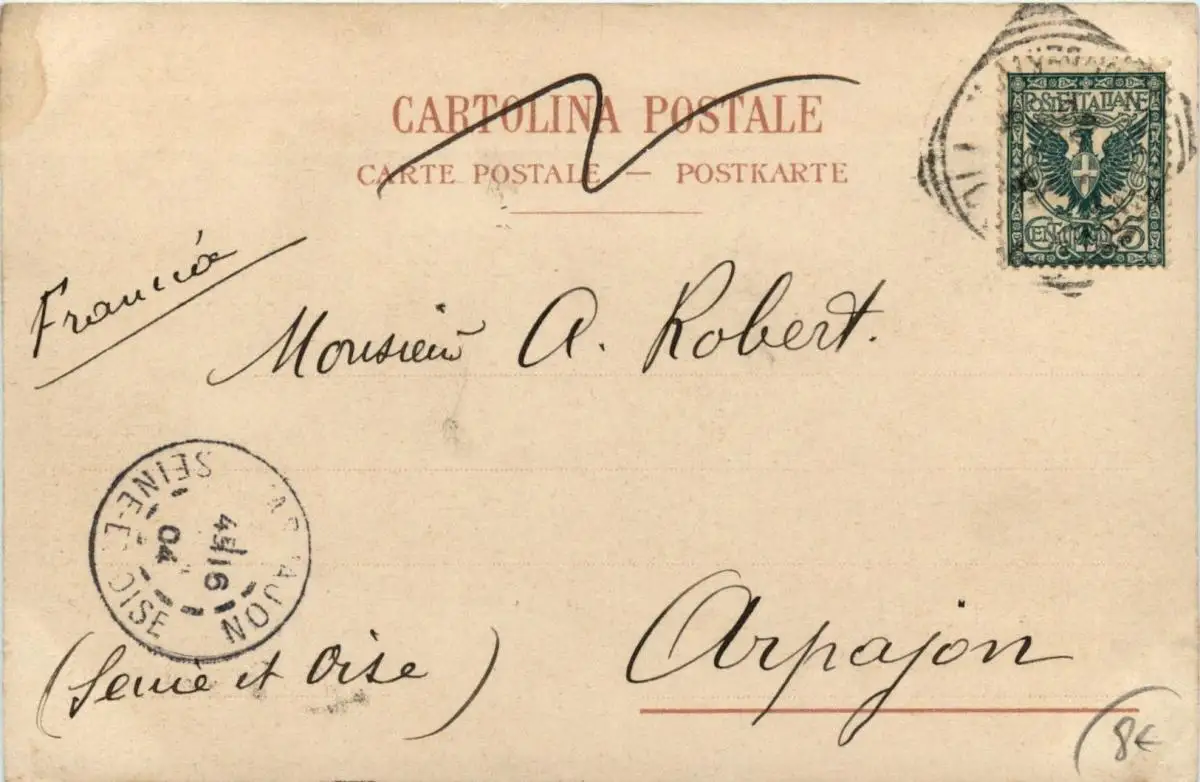 CARTOLINA POSTALE
CARTE POSTALE — POSTKARTE
POSTE ITALIANE
CENTESIMI 5
Francia
Monsieur A. Robert.
ARPAJON
SEINE-ET-OISE
16
04
Arpajon
(Seine et Oise)
8€